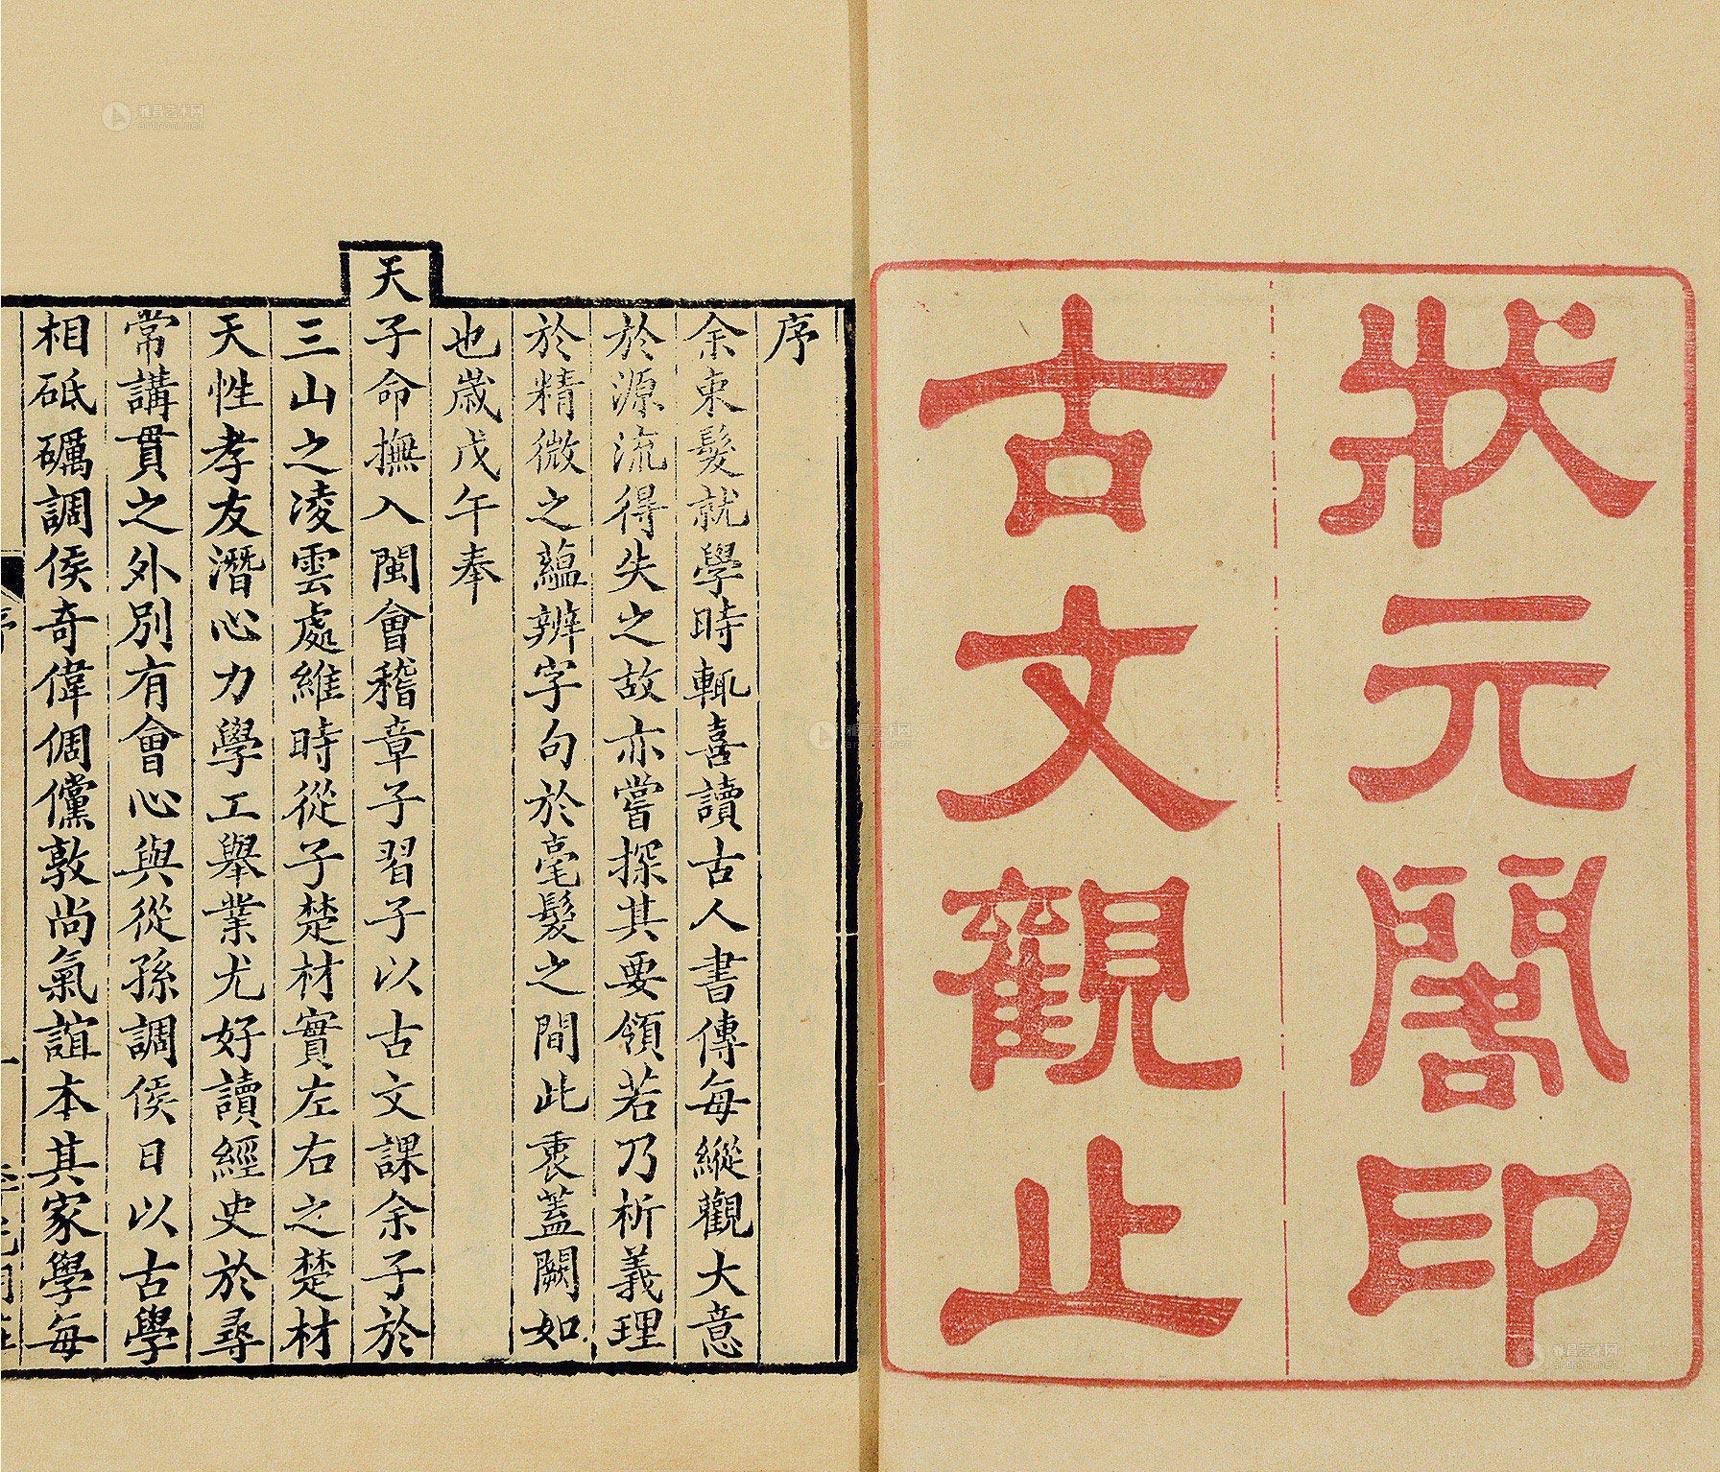 狀元閣印
古文觀止
序
余束髮就學時輒喜讀古人書傳每縱觀大意
於源流得失之故亦嘗探其要領若乃析義理
於精微之蘊辨字句於毫髮之間此衷蓋闕如
也歲戊午奉
天子命撫入閩會稽章子習子以古文課余子於
三山之凌雲處維時從子楚材實左右之楚材
天性孝友潛心力學工舉業尤好讀經史於尋
常講貫之外別有會心與從孫調侯日以古學
相砥礪調侯奇偉倜儻敦尚氣誼本其家學每
序
雅昌艺术网
artron.net